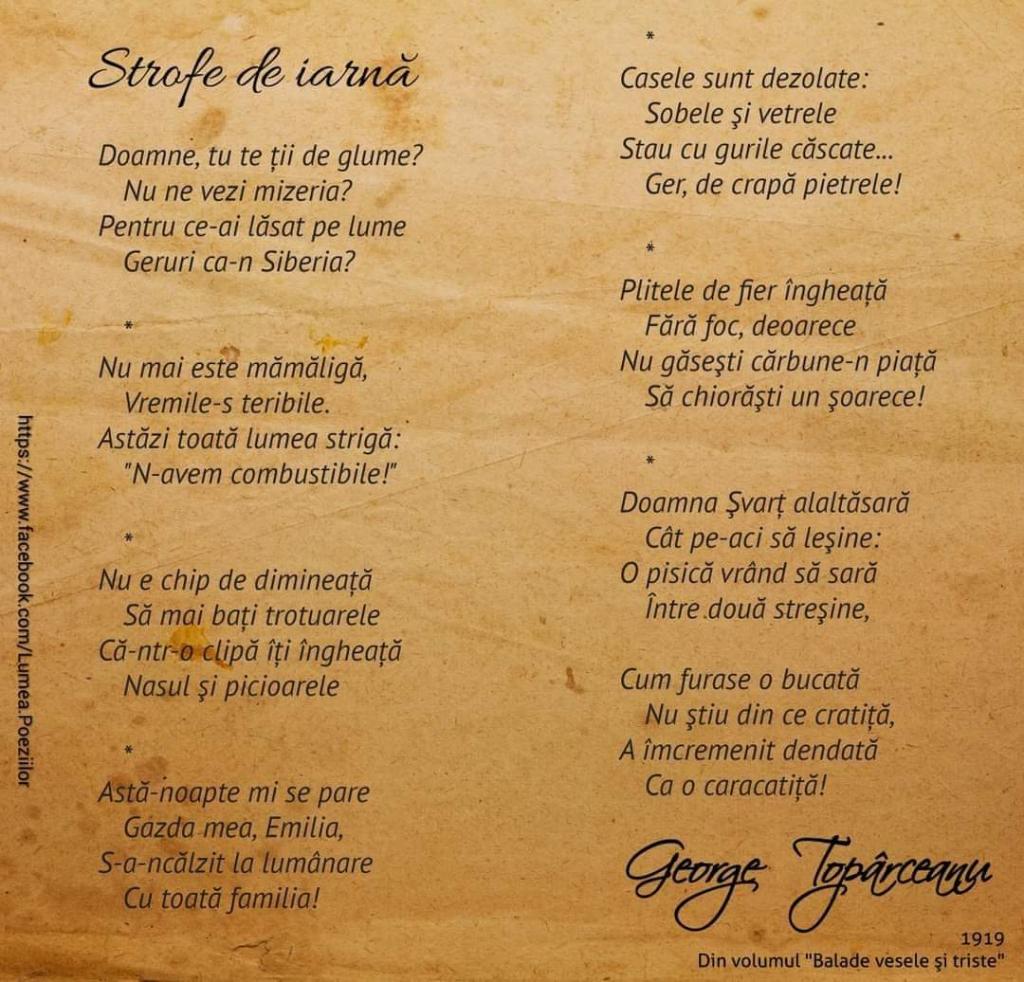 Strofe de iarnă
Doamne, tu te ții de glume?
Nu ne vezi mizeria?
Pentru ce-ai lăsat pe lume
Geruri ca-n Siberia?
*
Nu mai este mămăligă,
Vremile-s teribile.
Astăzi toată lumea strigă:
"N-avem combustibile!"
*
Nu e chip de dimineață
Să mai bați trotuarele
Că-ntr-o clipă îți îngheață
Nasul şi picioarele
*
Astă-noapte mi se pare
Gazda mea, Emilia,
S-a-ncălzit la lumânare
Cu toată familia!
*
Casele sunt dezolate:
Sobele şi vetrele
Stau cu gurile căscate...
Ger, de crapă pietrele!
*
Plitele de fier îngheață
Fără foc, deoarece
Nu găseşti cărbune-n piață
Să chiorăşti un şoarece!
*
Doamna Şvarț alaltăsară
Cât pe-aci să leşine:
O pisică vrând să sară
Între două streşine,
Cum furase o bucată
Nu ştiu din ce cratiță,
A îmcremenit dendată
Ca o caracatiță!
George Topârceanu
1919
Din volumul "Balade vesele şi triste"
https://www.facebook.com/Lumea.Poeziilor